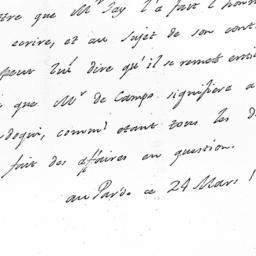 que Mr Jay l'a fait l'honn
ecrire, et au sujet de son cont
peut lui dire qu'il se remet enti
que Mr de Campo signifiera a
doqui, comm' etant tous les d
fait des affaires en question.
au Pardo ce 24 Mars